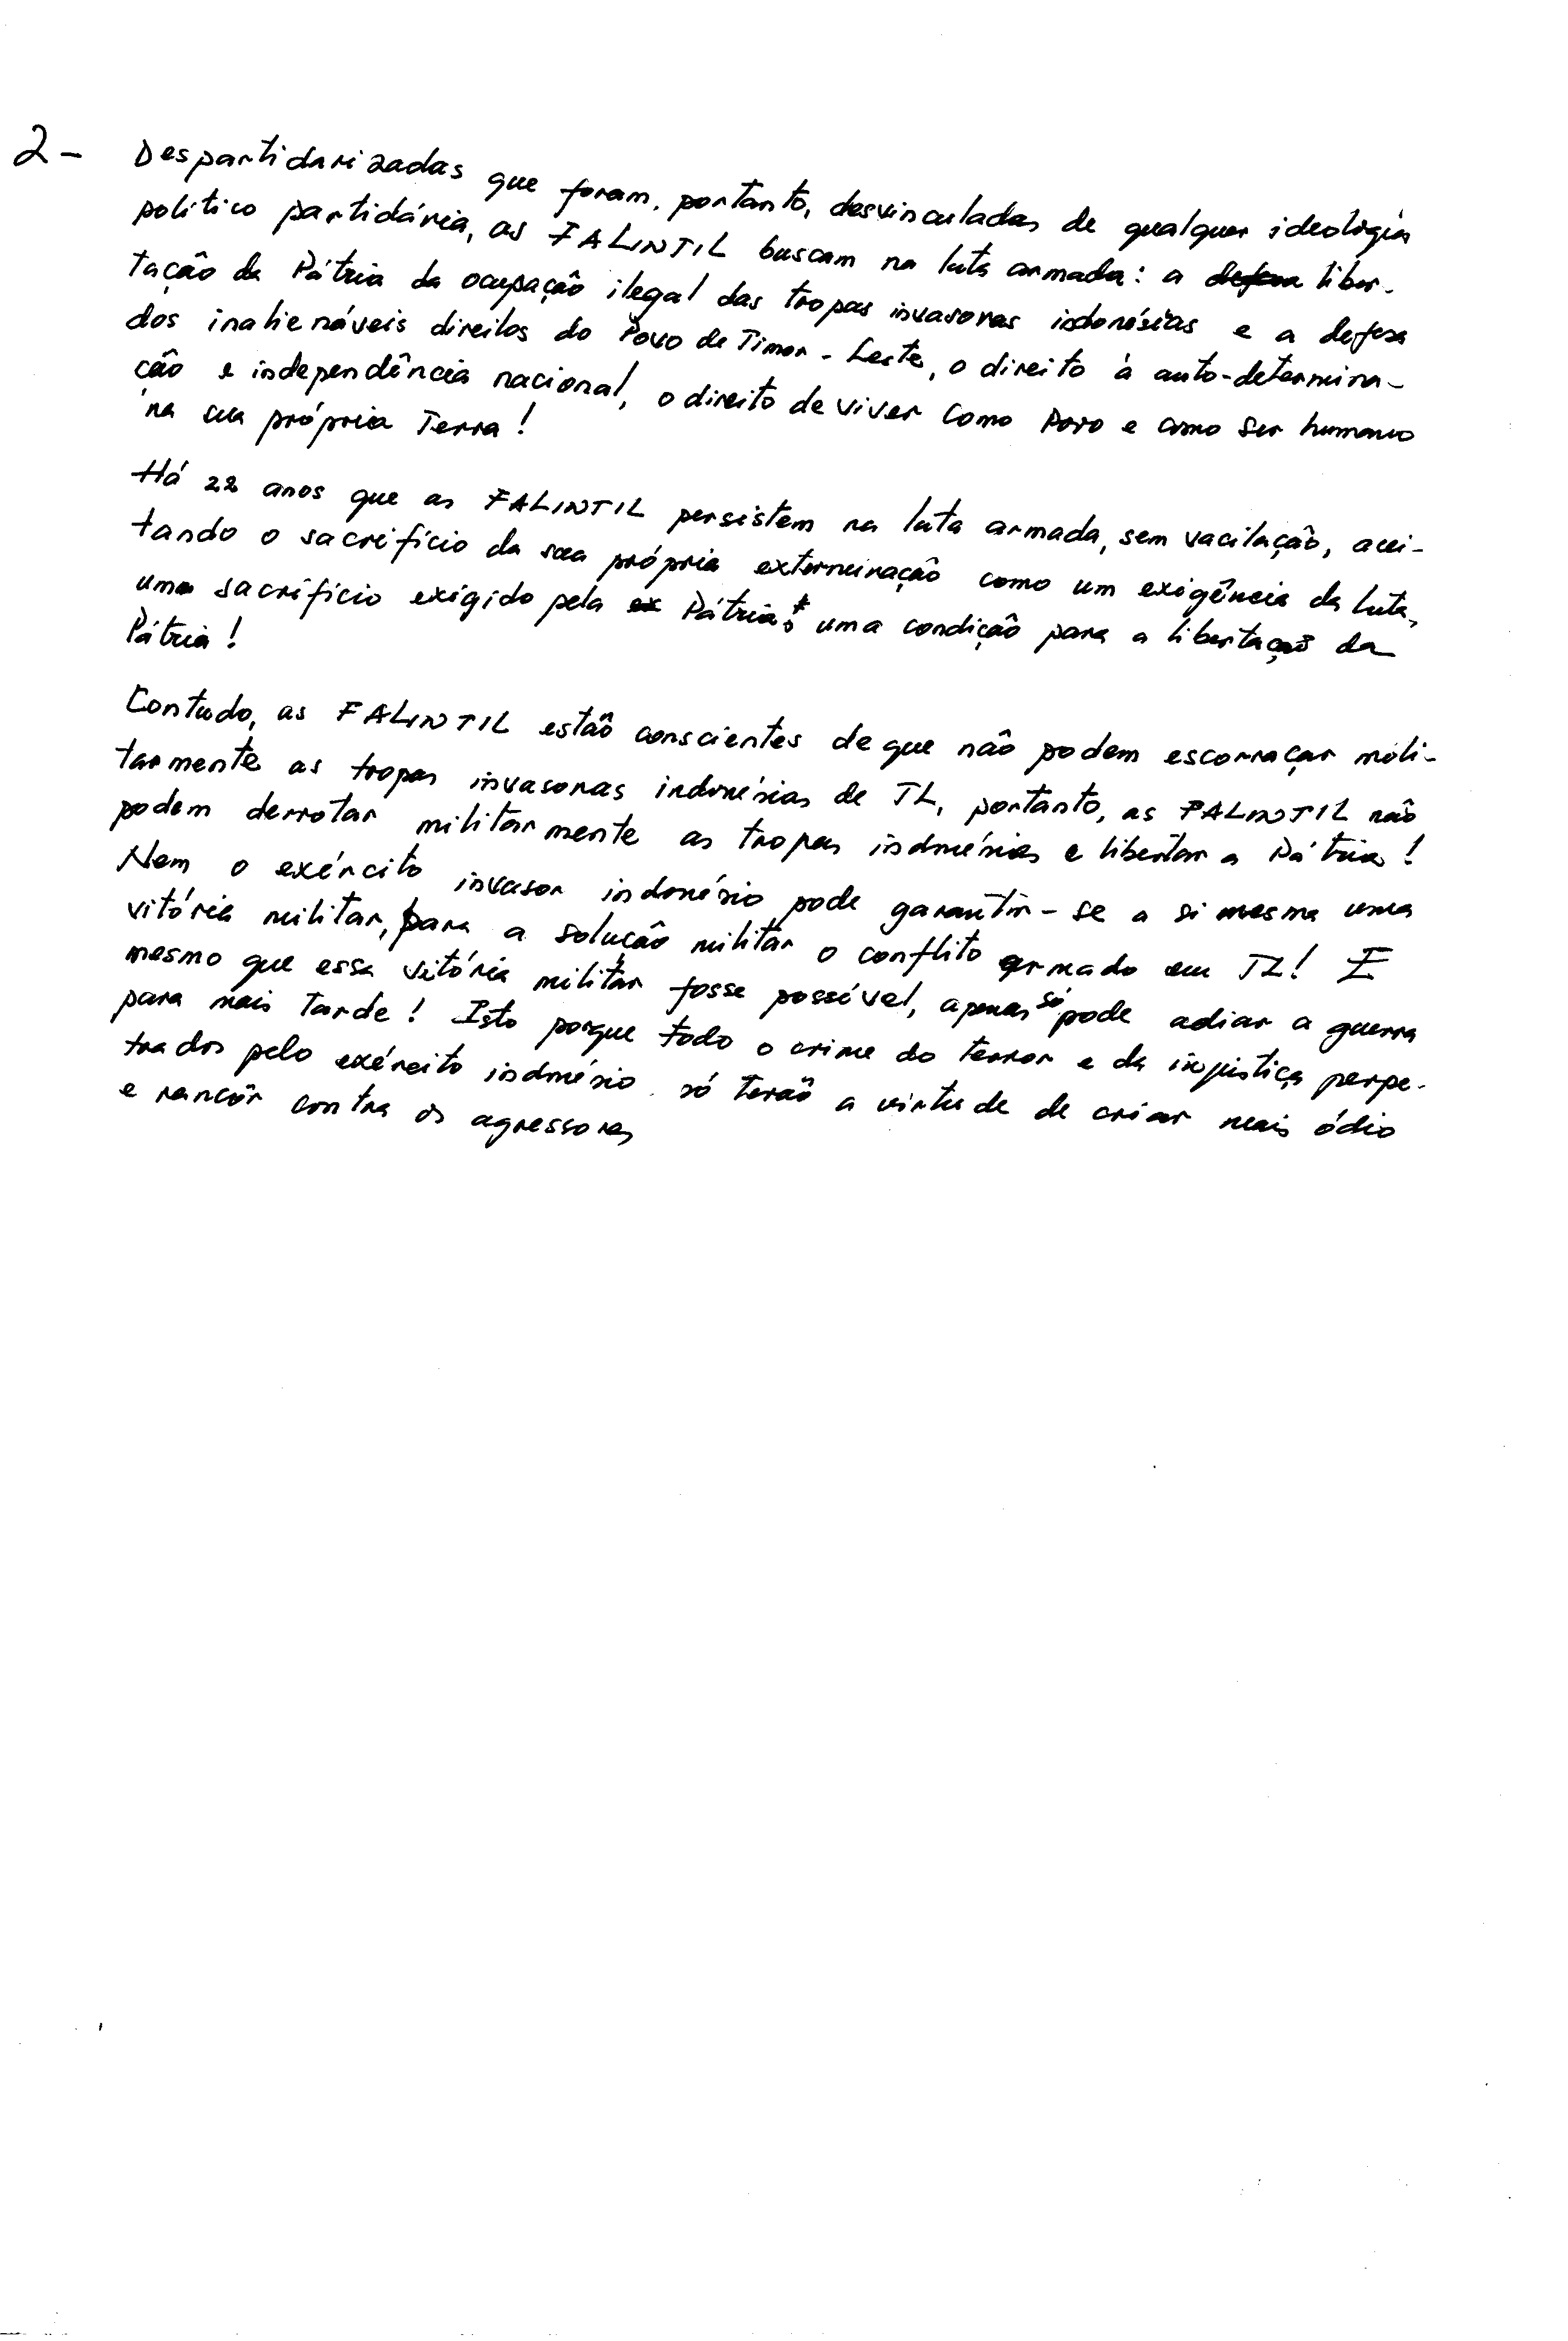 2- Despartidarizadas que foram, portanto, desvinculadas de qualquer ideologia
político partidária, as FALINTIL buscam na luta armada: a defesa liber-
tação da Pátria da ocupação ilegal das tropas invasoras indonésias e a defesa
dos inalienáveis direitos do Povo de Timor-Leste, o direito à auto-determina-
ção e independência nacional, o direito de viver como Povo e como ser humano
na sua própria Terra!
Há 22 anos que as FALINTIL persistem na luta armada, sem vacilação, acei-
tando o sacrifício da sua própria exterminação como um exigência da luta,
uma sacrifício exigido pela ex Pátria: uma condição para a libertação da
Pátria!
Contudo, as FALINTIL estão conscientes de que não podem escorraçar mili-
tarmente as tropas invasoras indonésias de TL, portanto, as FALINTIL não
podem derrotar militarmente as tropas indonésias e libertar a Pátria!
Nem o exército invasor indonésio pode garantir-se a si mesma uma
vitória militar, para a solução militar o conflito armado em TL! E
mesmo que essa vitória militar fosse possível, apenas só pode adiar a guerra
para mais tarde! Isto porque todo o crime do terror e da injustiça perpe-
trados pelo exército indonésio só terão a virtude de criar mais ódio
e rancôr contra os agressores